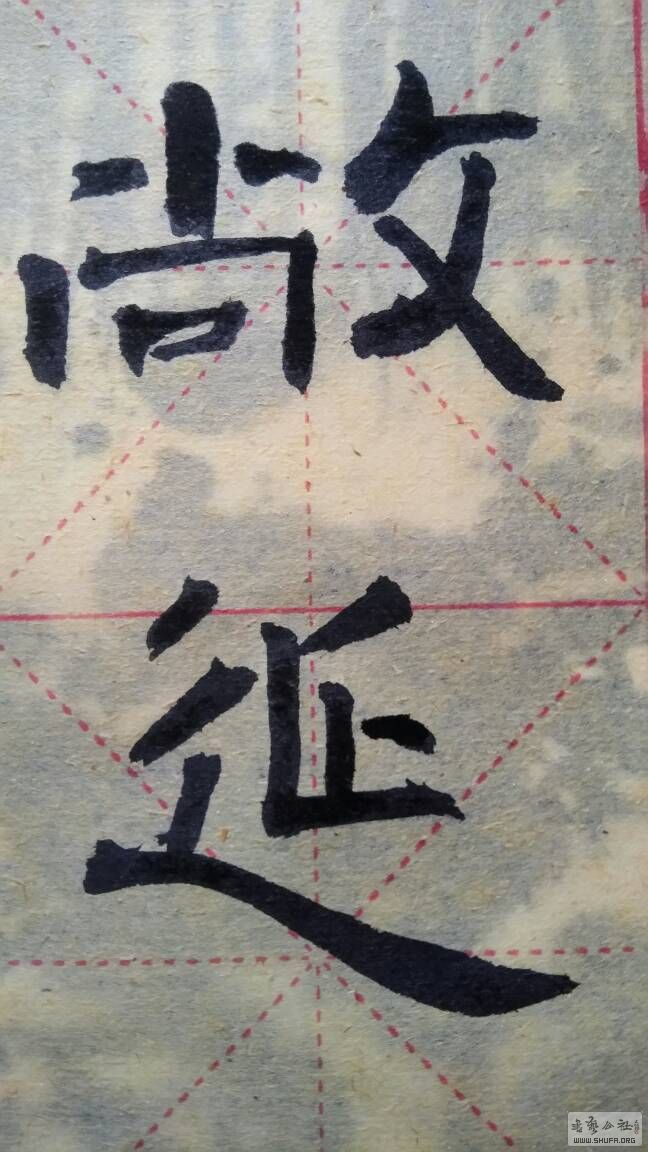 敞
延
書藝公社
WWW.SHUFA.ORG